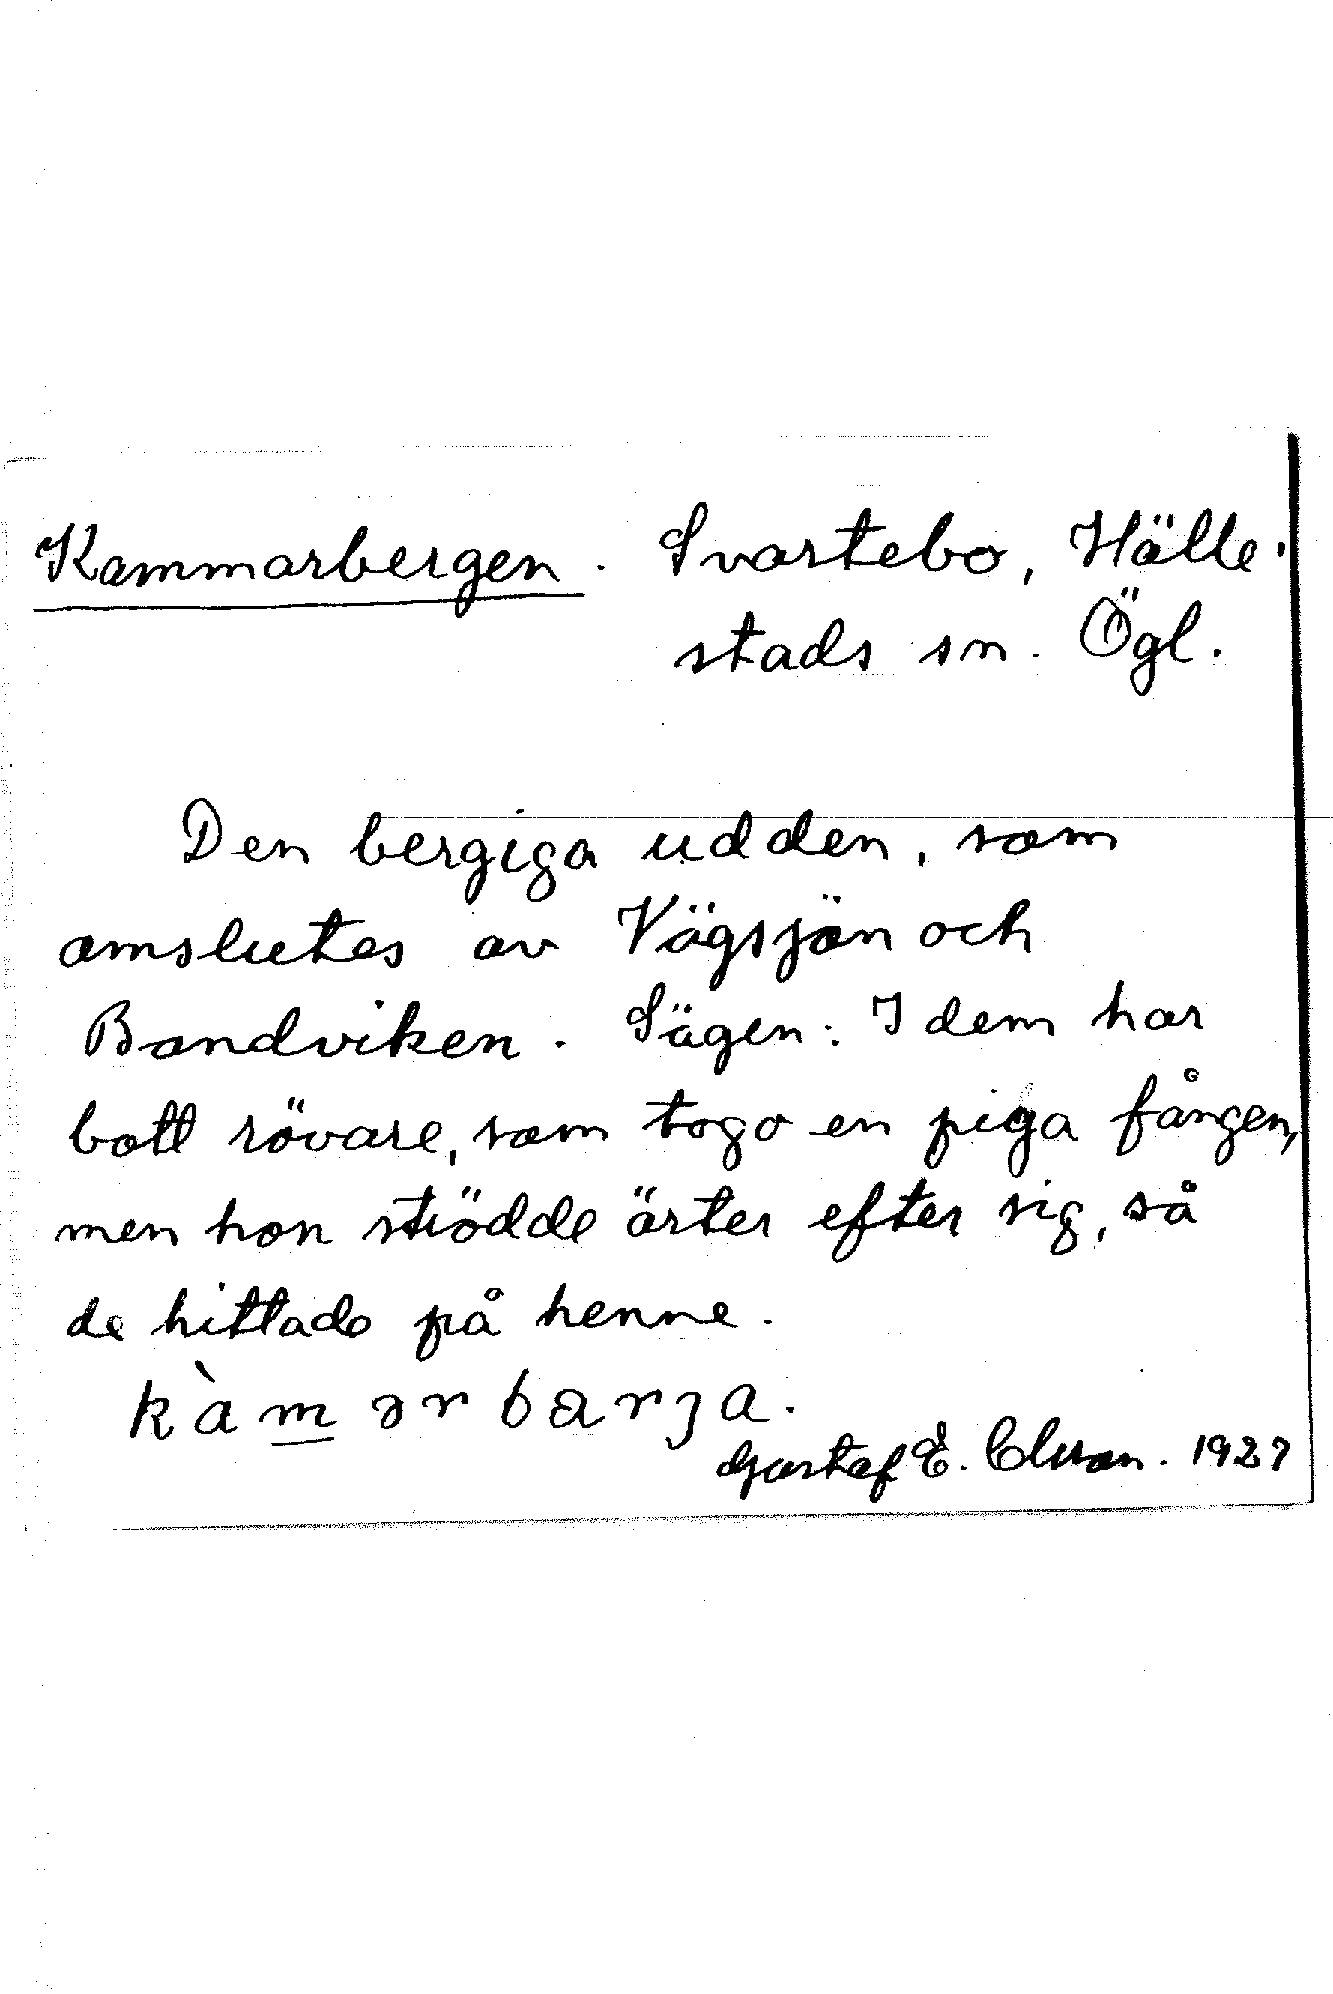 Kammarbergen. Svartebo, Hälle-
stads sn. Ögl.
Den bergiga udden, som
omslutes av Vägsjön och
Bandviken. Sägen: I dem har
bott rövare, som togo en piga fången,
men hon strödde ärter efter sig, så
de hittade på henne.
kàmərbarja.
Gustaf E. Clason. 1927